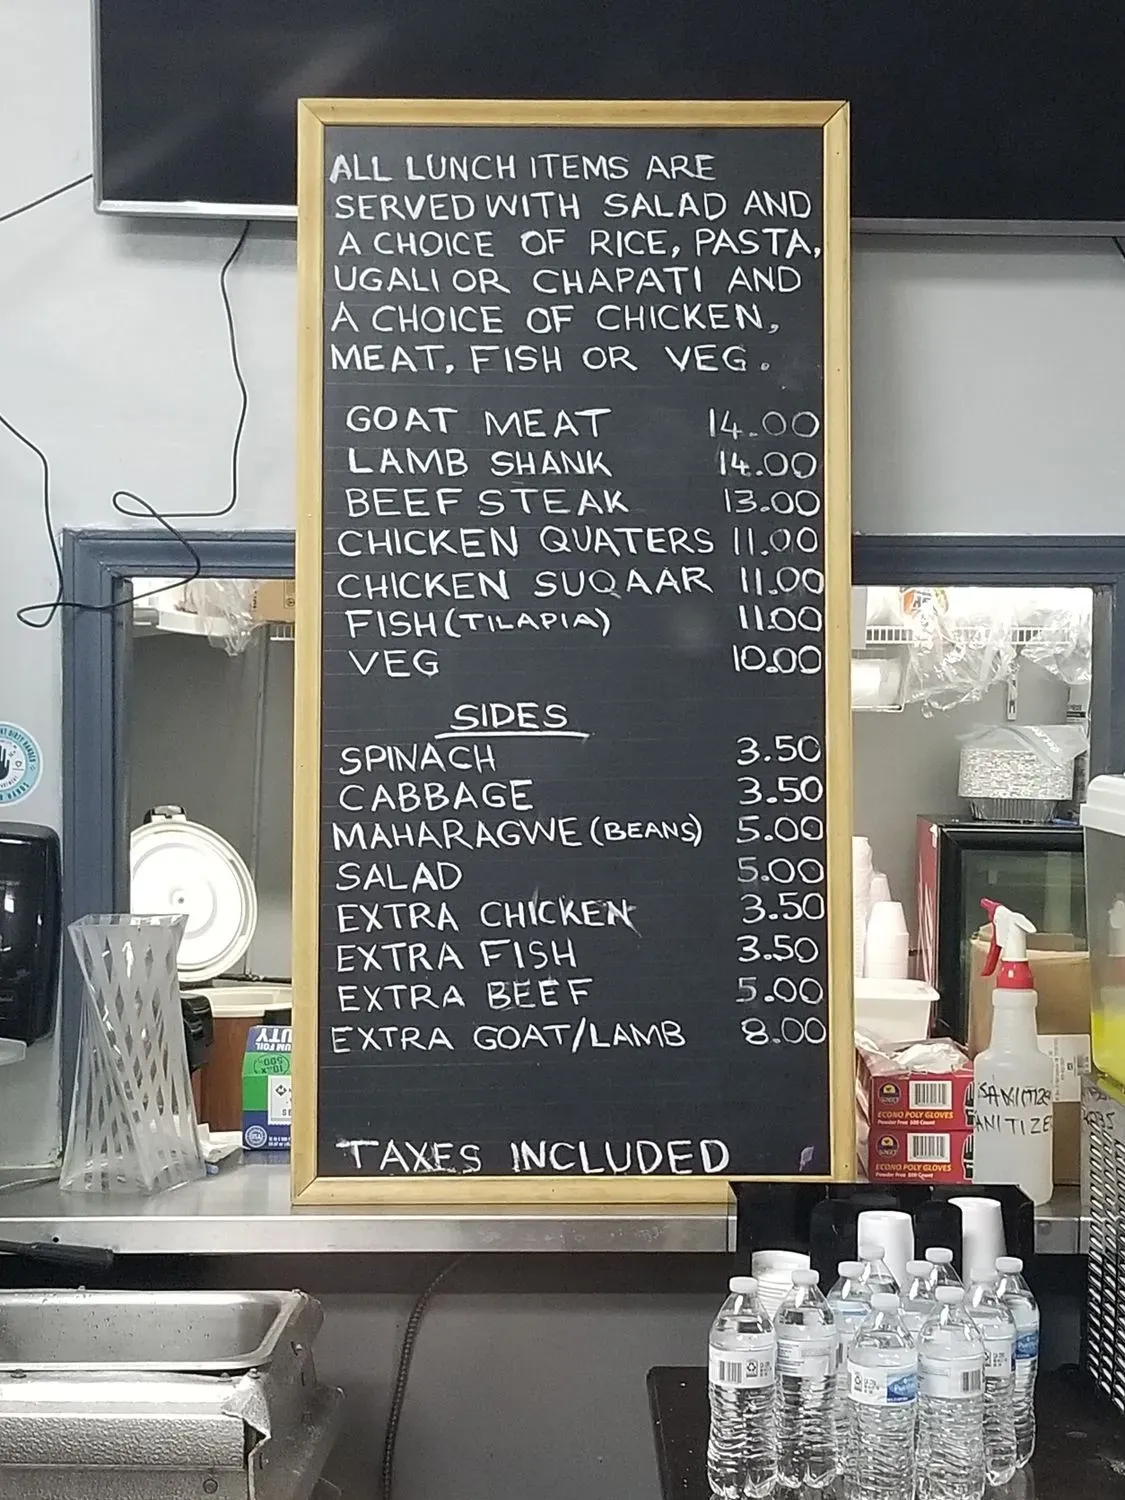 ALL LUNCH ITEMS ARE
SERVED WITH SALAD AND
A CHOICE OF RICE, PASTA,
UGALI OR CHAPATI AND
A CHOICE OF CHICKEN,
MEAT, FISH OR VEG.
GOAT MEAT 14.00
LAMB SHANK 14.00
BEEF STEAK 13.00
CHICKEN QUATERS 11.00
CHICKEN SUQAAR 11.00
FISH (TILAPIA) 11.00
VEG 10.00
SIDES
SPINACH 3.50
CABBAGE 3.50
MAHARAGWE (BEANS) 5.00
SALAD 5.00
EXTRA CHICKEN 3.50
EXTRA FISH 3.50
EXTRA BEEF 5.00
EXTRA GOAT/LAMB 8.00
TAXES INCLUDED
ECONO POLY GLOVES
Powder Free 500 Count
ECONO POLY GLOVES
Powder Free 500 Count